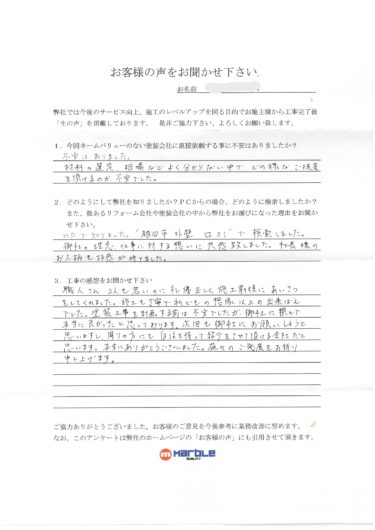 お客様の声をお聞かせ下さい.
お名前
弊社では今後のサービス向上、施工のレベルアップを図る目的でお施主様から工事完了後
「生の声」を頂戴しております。 是非ご協力下さい、よろしくお願い致します。
1．今回ネームバリューのない塗装会社に直接依頼する事に不安はありましたか？
不安はありました。
材料の選定、相場などよく分からない中で どの様なご提案
を頂けるのか不安でした。
2．どのようにして弊社を知りましたか？PCからの場合、どのように検索しましたか？
また、数あるリフォーム会社や塗装会社の中から弊社をお選びになった理由をお聞か
せ下さい。
HPで知りました。"越谷市 外壁 口コミ"で検索しました。
御社の理念、仕事に対する想いに共感致しました。社長様の
お人柄も好感が持てました。
3．工事の感想をお聞かせ下さい
職人さん 2人も若いのに礼儀正しく施工前後にあいさつ
をしてくれました。施工も丁寧でわたしの想像以上の出来ばえ
でした。塗装工事を計画する前は不安でしたが御社に頼んで
本当に良かったと思っております。次回も御社にお願いしようと
思いますし、周りの方にも自信を持って紹介させて頂ける会社だと
思います。本当にありがとうございました。益々のご発展をお祈り
申し上げます。
ご協力ありがとうございました。お客様のご意見を今後参考に業務改善に努めます。
なお、このアンケートは弊社のホームページの「お客様の声」にも引用させて頂きます。
marble
QUALITY